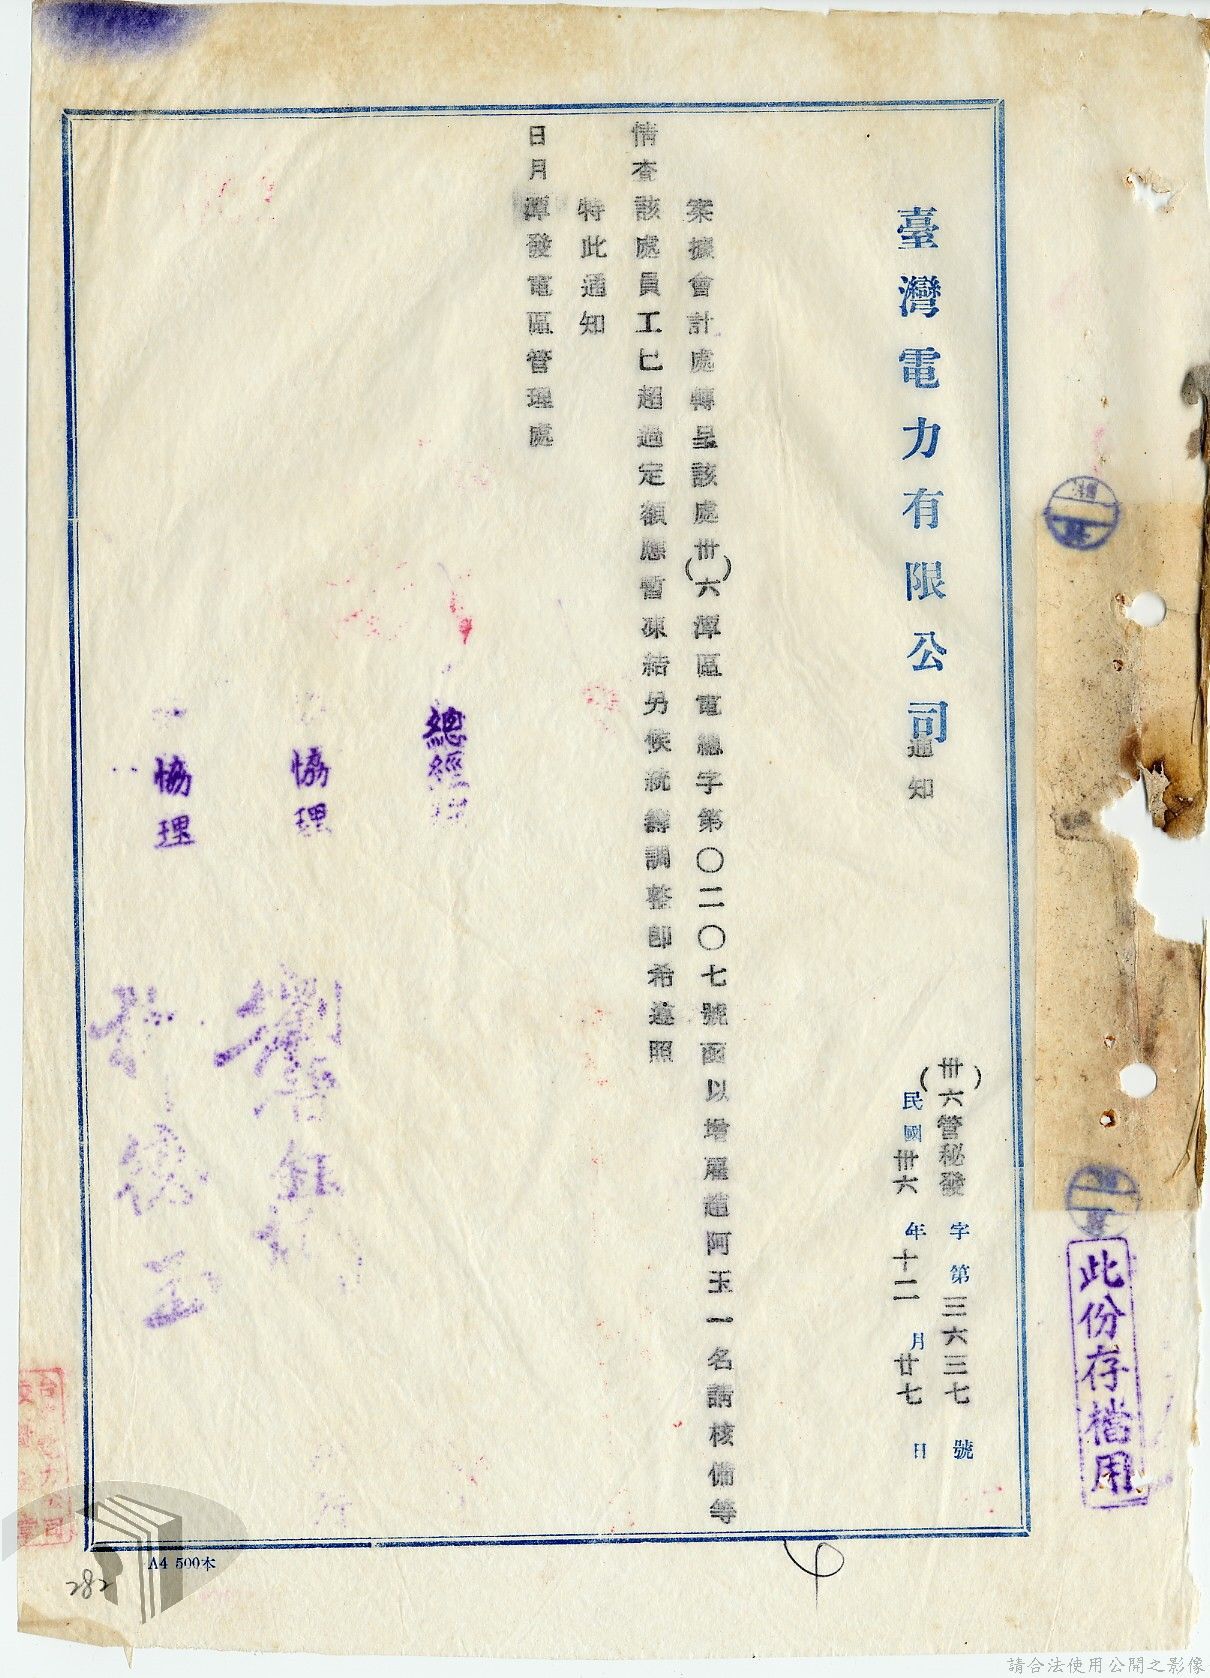 臺灣電力有限公司通知
(卅六)管秘發字第三六三七號
民國卅六年十二月廿七日
案據會計處轉呈該處(卅六)潭區電總字第〇二〇七號函以增雇 阿玉一名請核備等
情查該處員工已超過定額應暫凍結另候統籌調整即希遵照
特此通知
日月潭發電區管理處
總經理
協理
協理
此份存檔用
A4 500本
282
請合法使用公開之影像